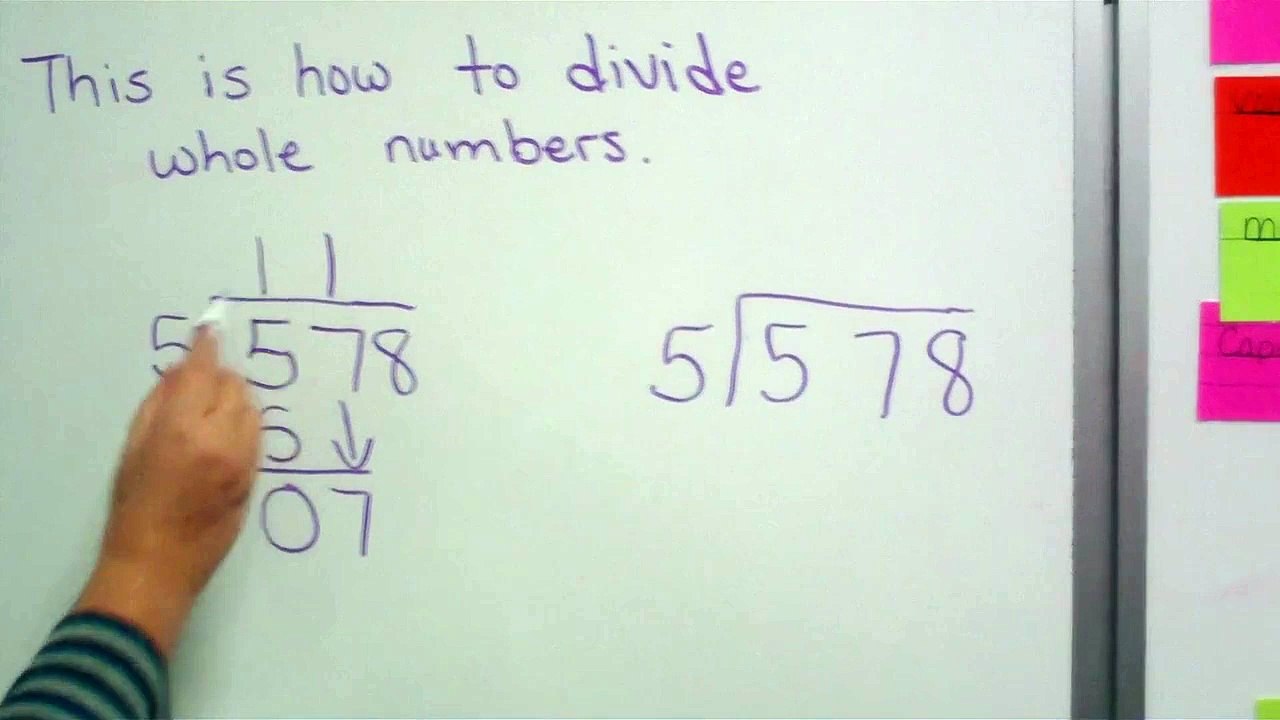 This is how to divide
whole numbers.
11
5 578
5 ↓
07
5 578
m
Cap